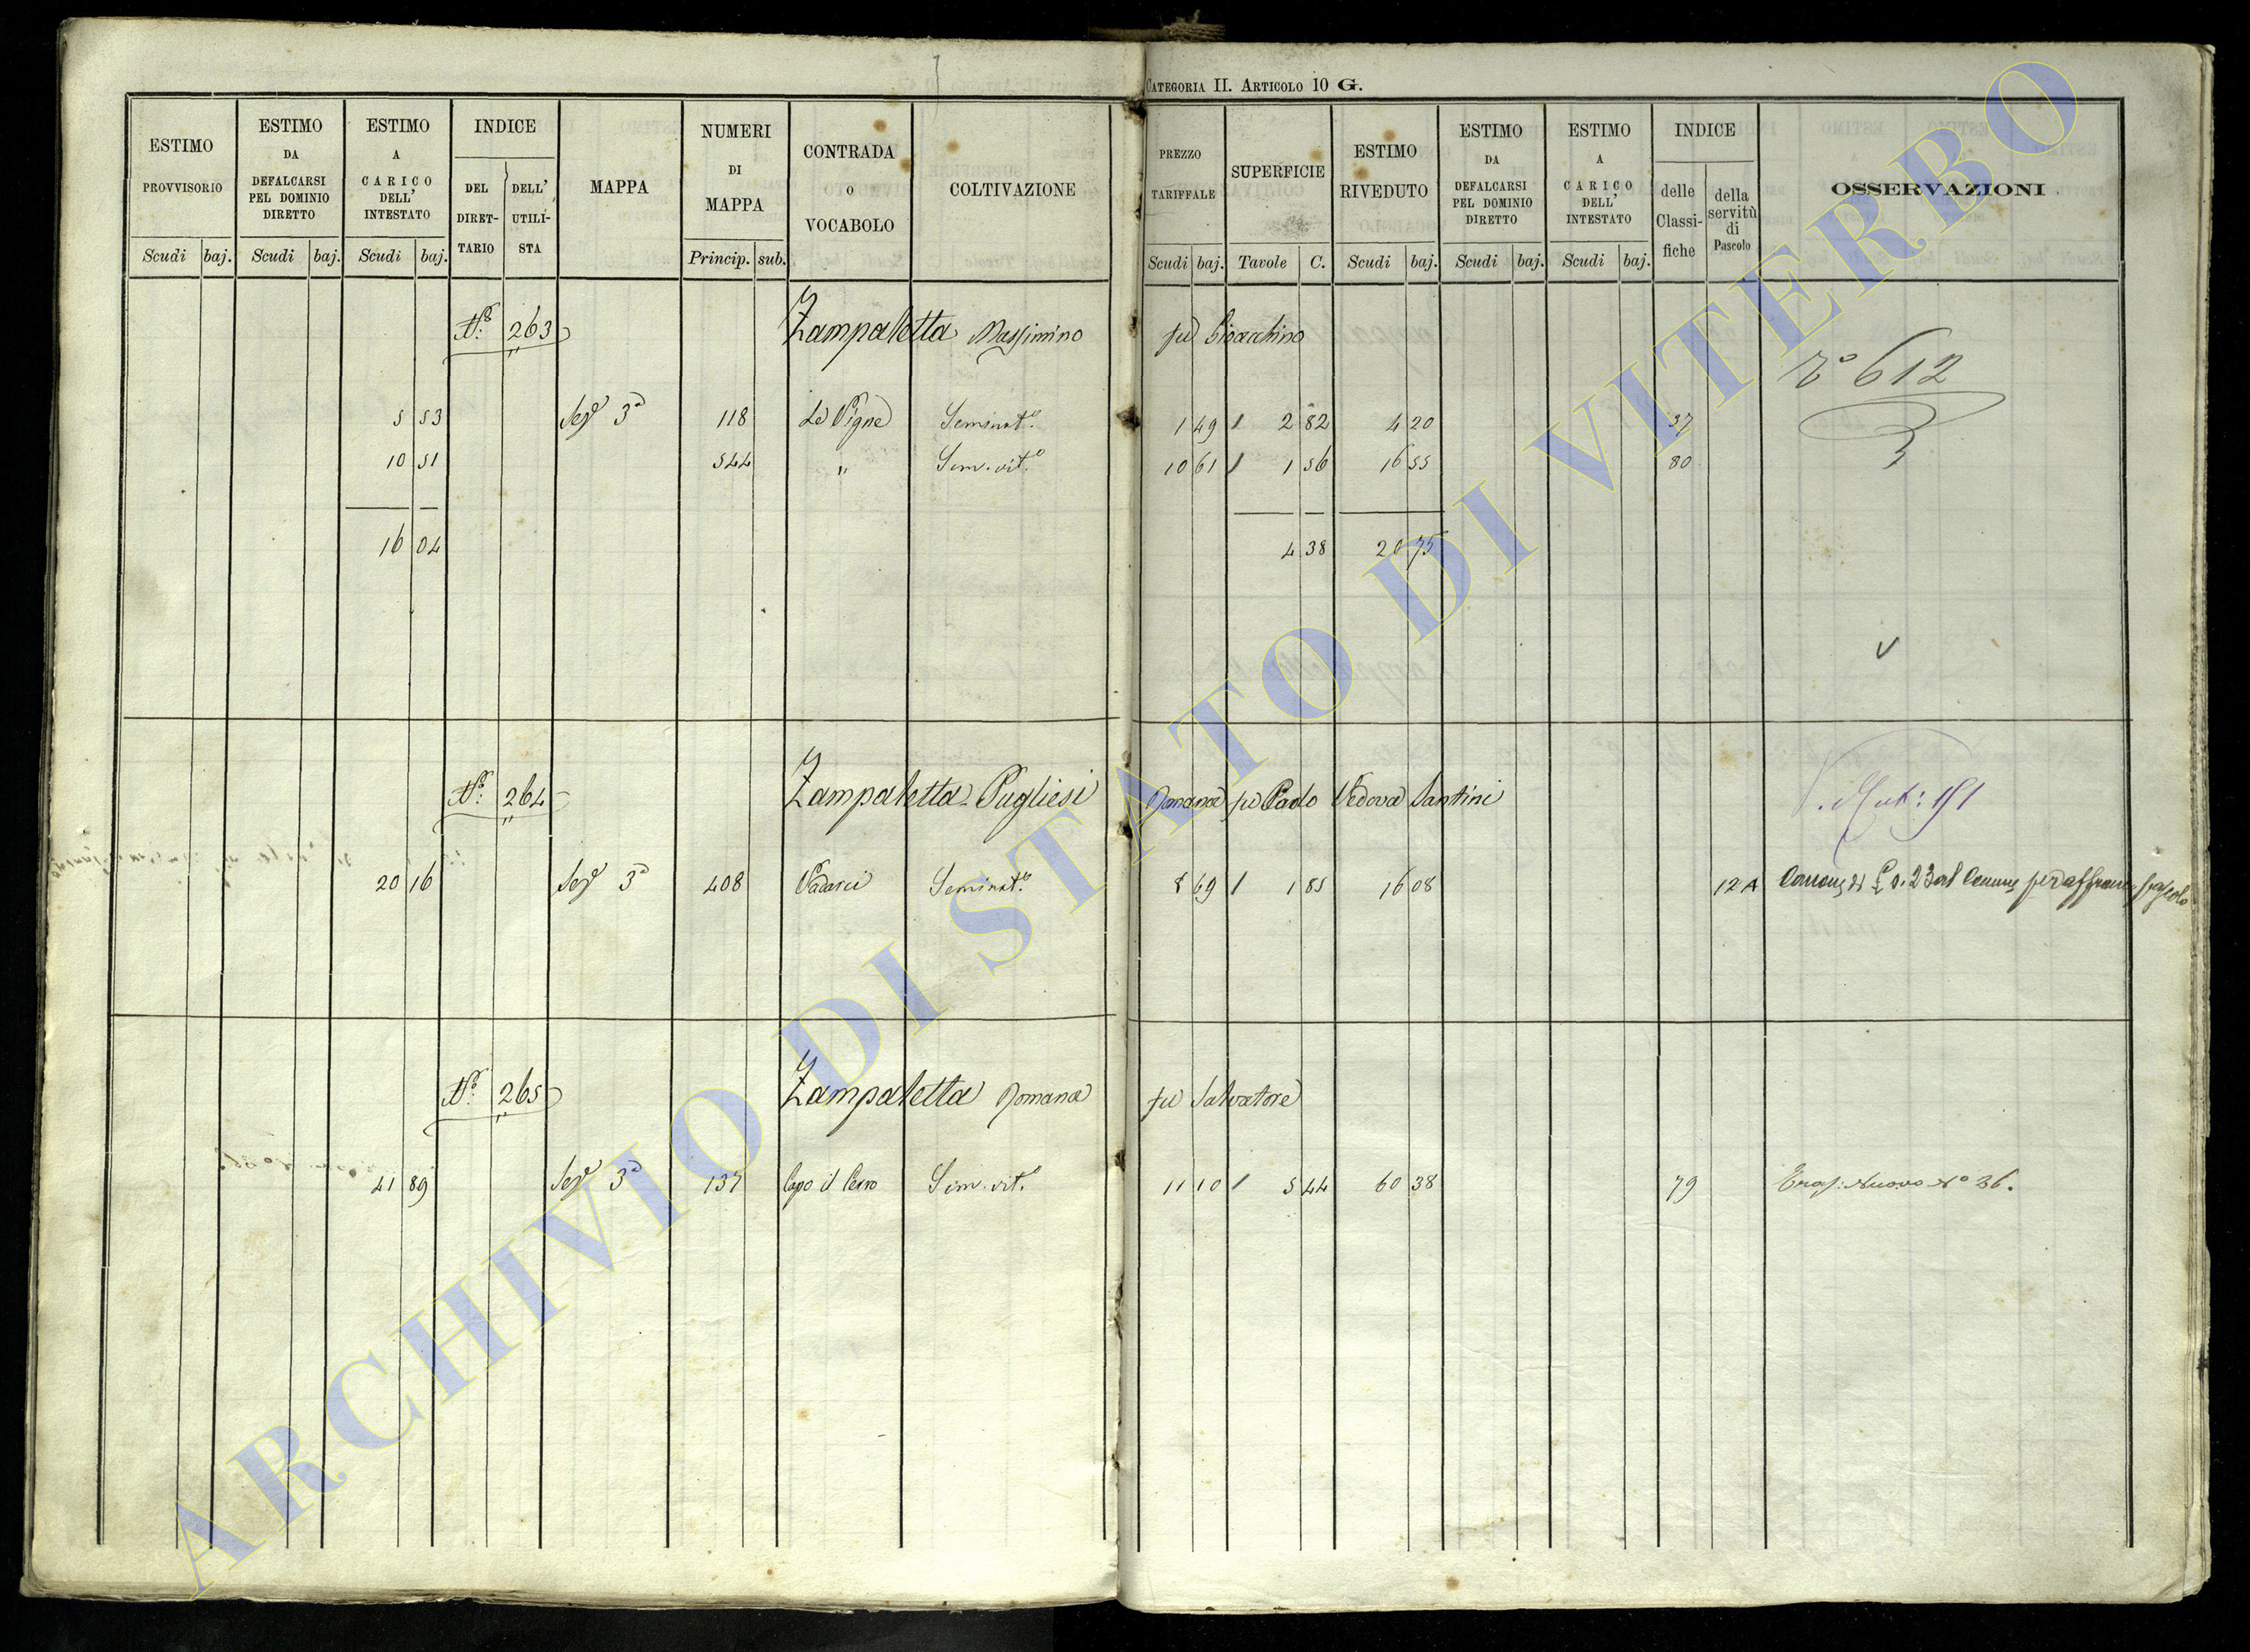 CATEGORIA II. ARTICOLO 10 G.
ESTIMO PROVVISORIO Scudi baj.
ESTIMO DA DEFALCARSI PEL DOMINIO DIRETTO Scudi baj.
ESTIMO A CARICO DELL' INTESTATO Scudi baj.
INDICE DEL DIRET-TARIO DELL' UTILI-STA
MAPPA
NUMERI DI MAPPA Princip. sub.
CONTRADA O VOCABOLO
COLTIVAZIONE
PREZZO TARIFFALE Scudi baj.
SUPERFICIE Tavole C.
ESTIMO RIVEDUTO Scudi baj.
ESTIMO DA DEFALCARSI PEL DOMINIO DIRETTO Scudi baj.
ESTIMO A CARICO DELL' INTESTATO Scudi baj.
INDICE delle Classi-fiche della servitù di Pascolo
OSSERVAZIONI
N.º 263 Zampaletta Massimino fu Gioacchino
612
5 53 Sezº 3ª 118 Le Vigne Seminatº. 1 49 1 2 82 4 20 37
10 51 544 " Sem. vit.º 10 61 1 1 56 16 55 80
16 04 4 38 20 75
N.º 264 Zampaletta-Pugliesi Romana fu Paolo Vedova Santini
20 16 Sezº 3ª 408 Seminatº. 8 69 1 1 85 16 08 12 A
N.º 265 Zampaletta Romana fu Salvatore
41 89 Sezº 3ª 137 Capo il Cerro Sem. vit.º 11 10 1 5 44 60 38 79 Nuovo Nº 36.
ARCHIVIO DI STATO DI VITERBO